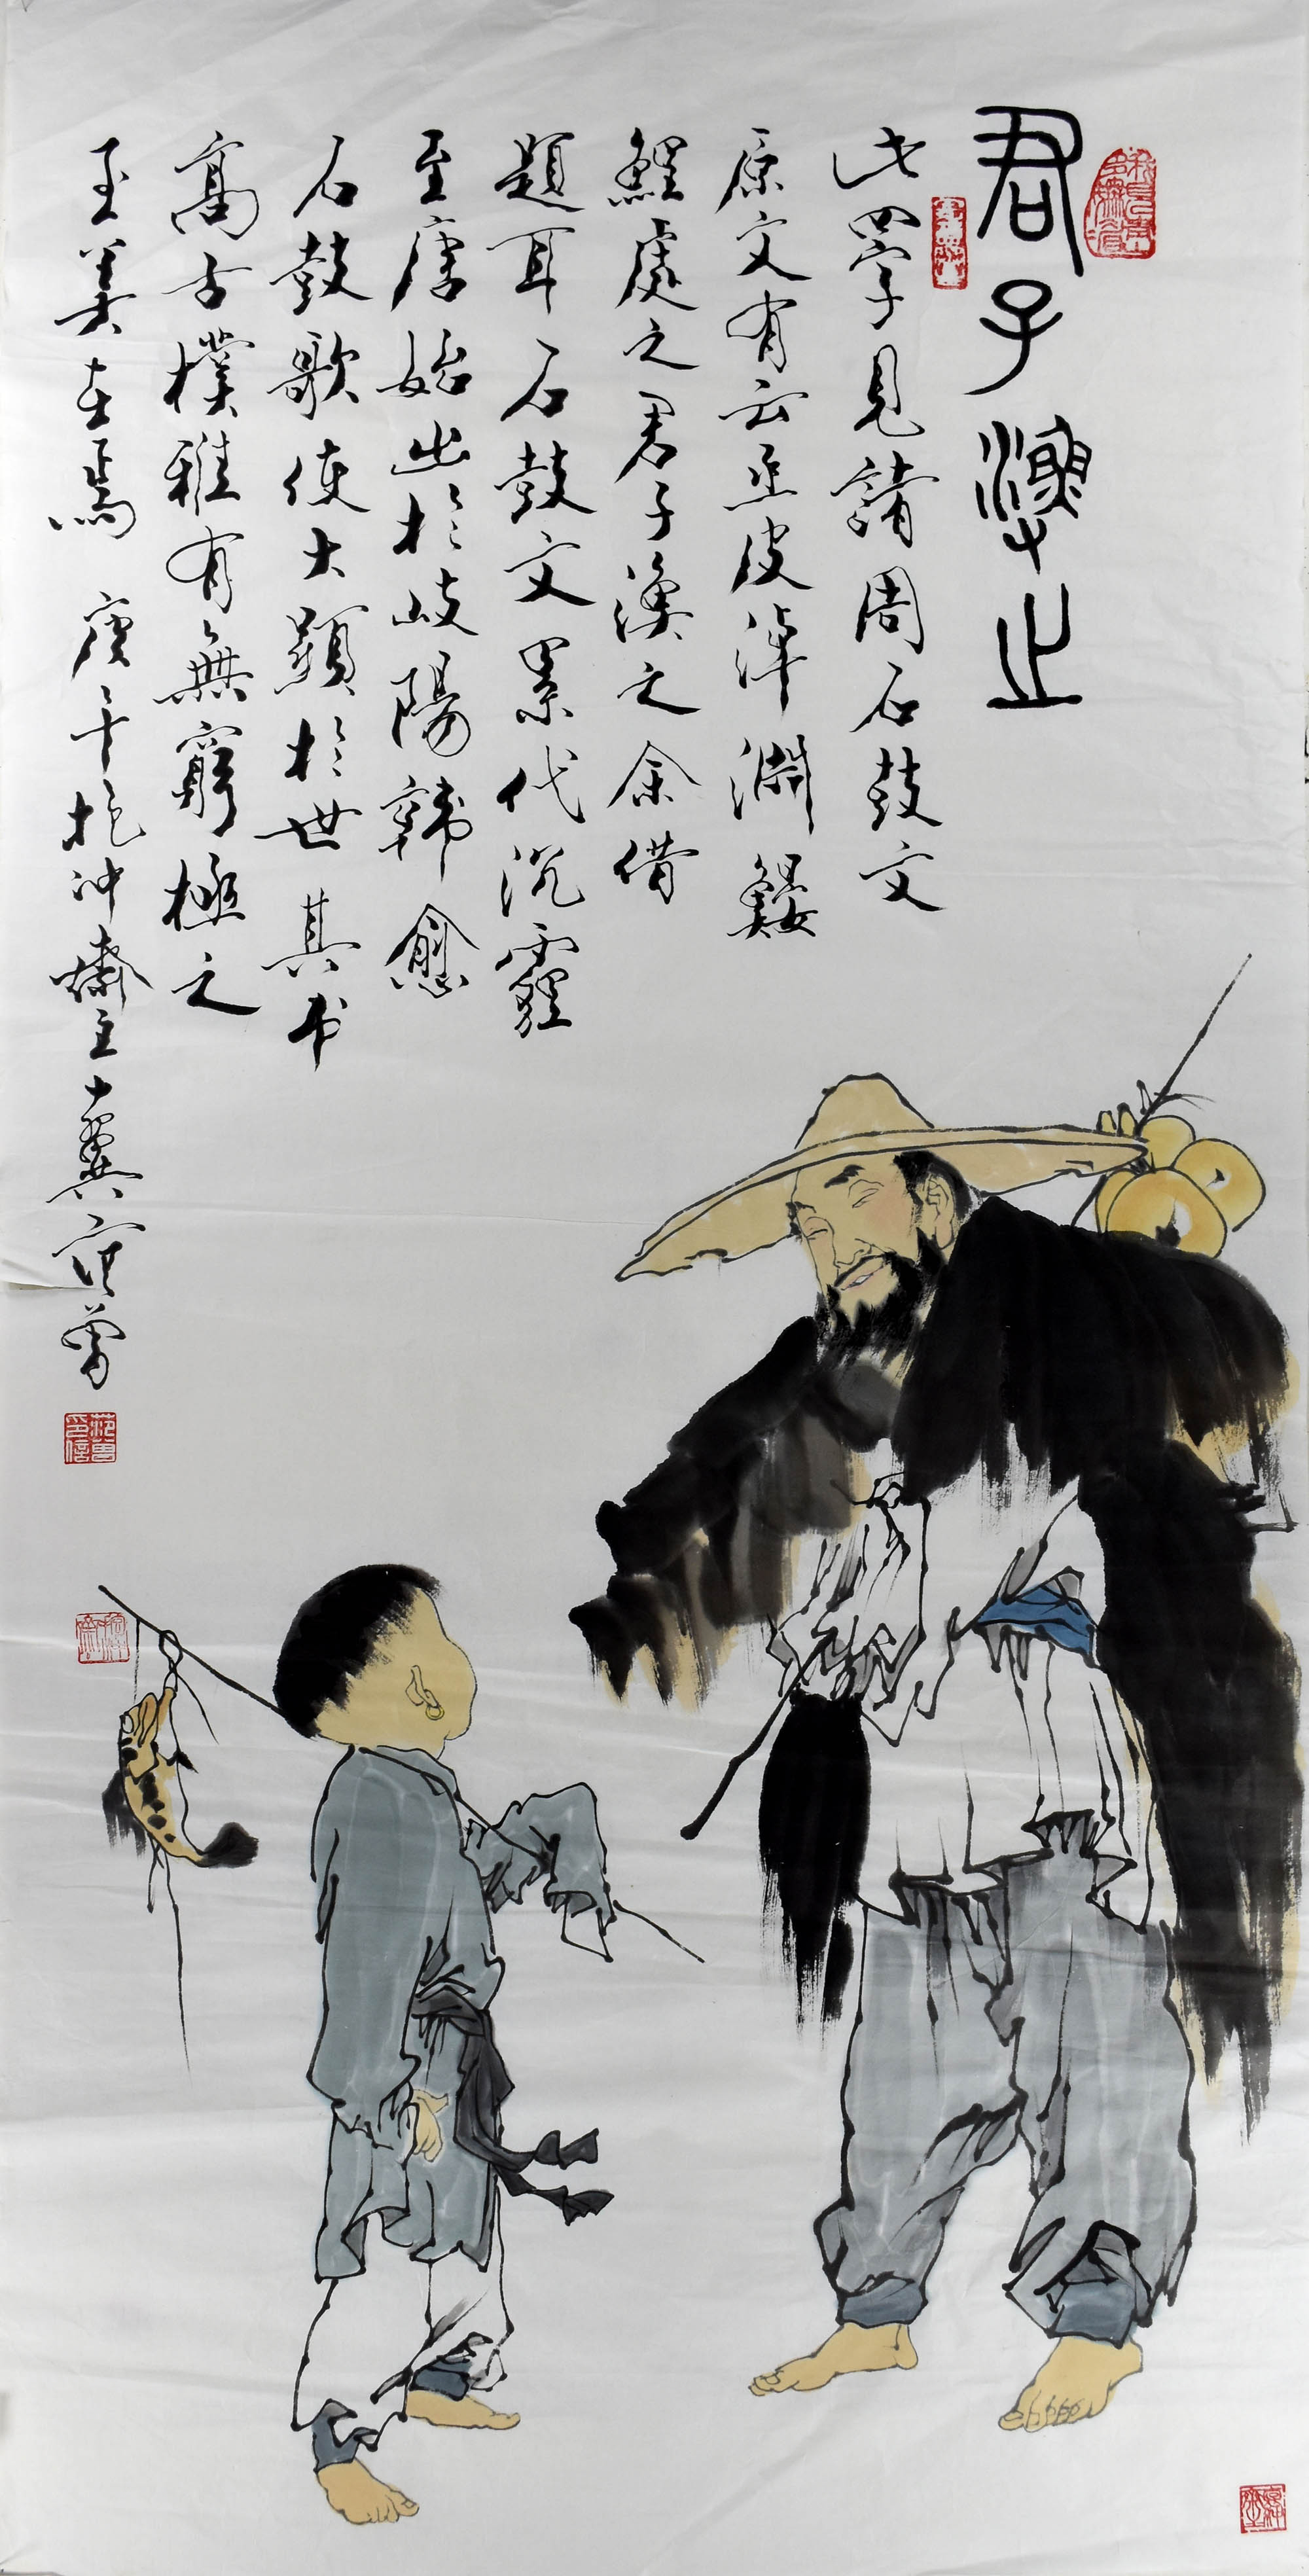 君子漁之
此四字見諸周石鼓文
原文有云丞皮淖淵鰋
鯉處之君子漁之余借
題耳石鼓文累代沉霾
至唐始出於岐陽韓愈
石鼓歌使大顯於世其书
高古樸雅有無窮極之
至美在焉 庚午抱冲齋主十翼范曾
范曾印信